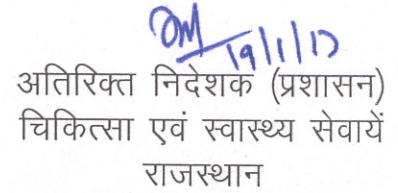 19/1/17
अतिरिक्त निदेशक (प्रशासन)
चिकित्सा एवं स्वास्थ्य सेवायें
राजस्थान